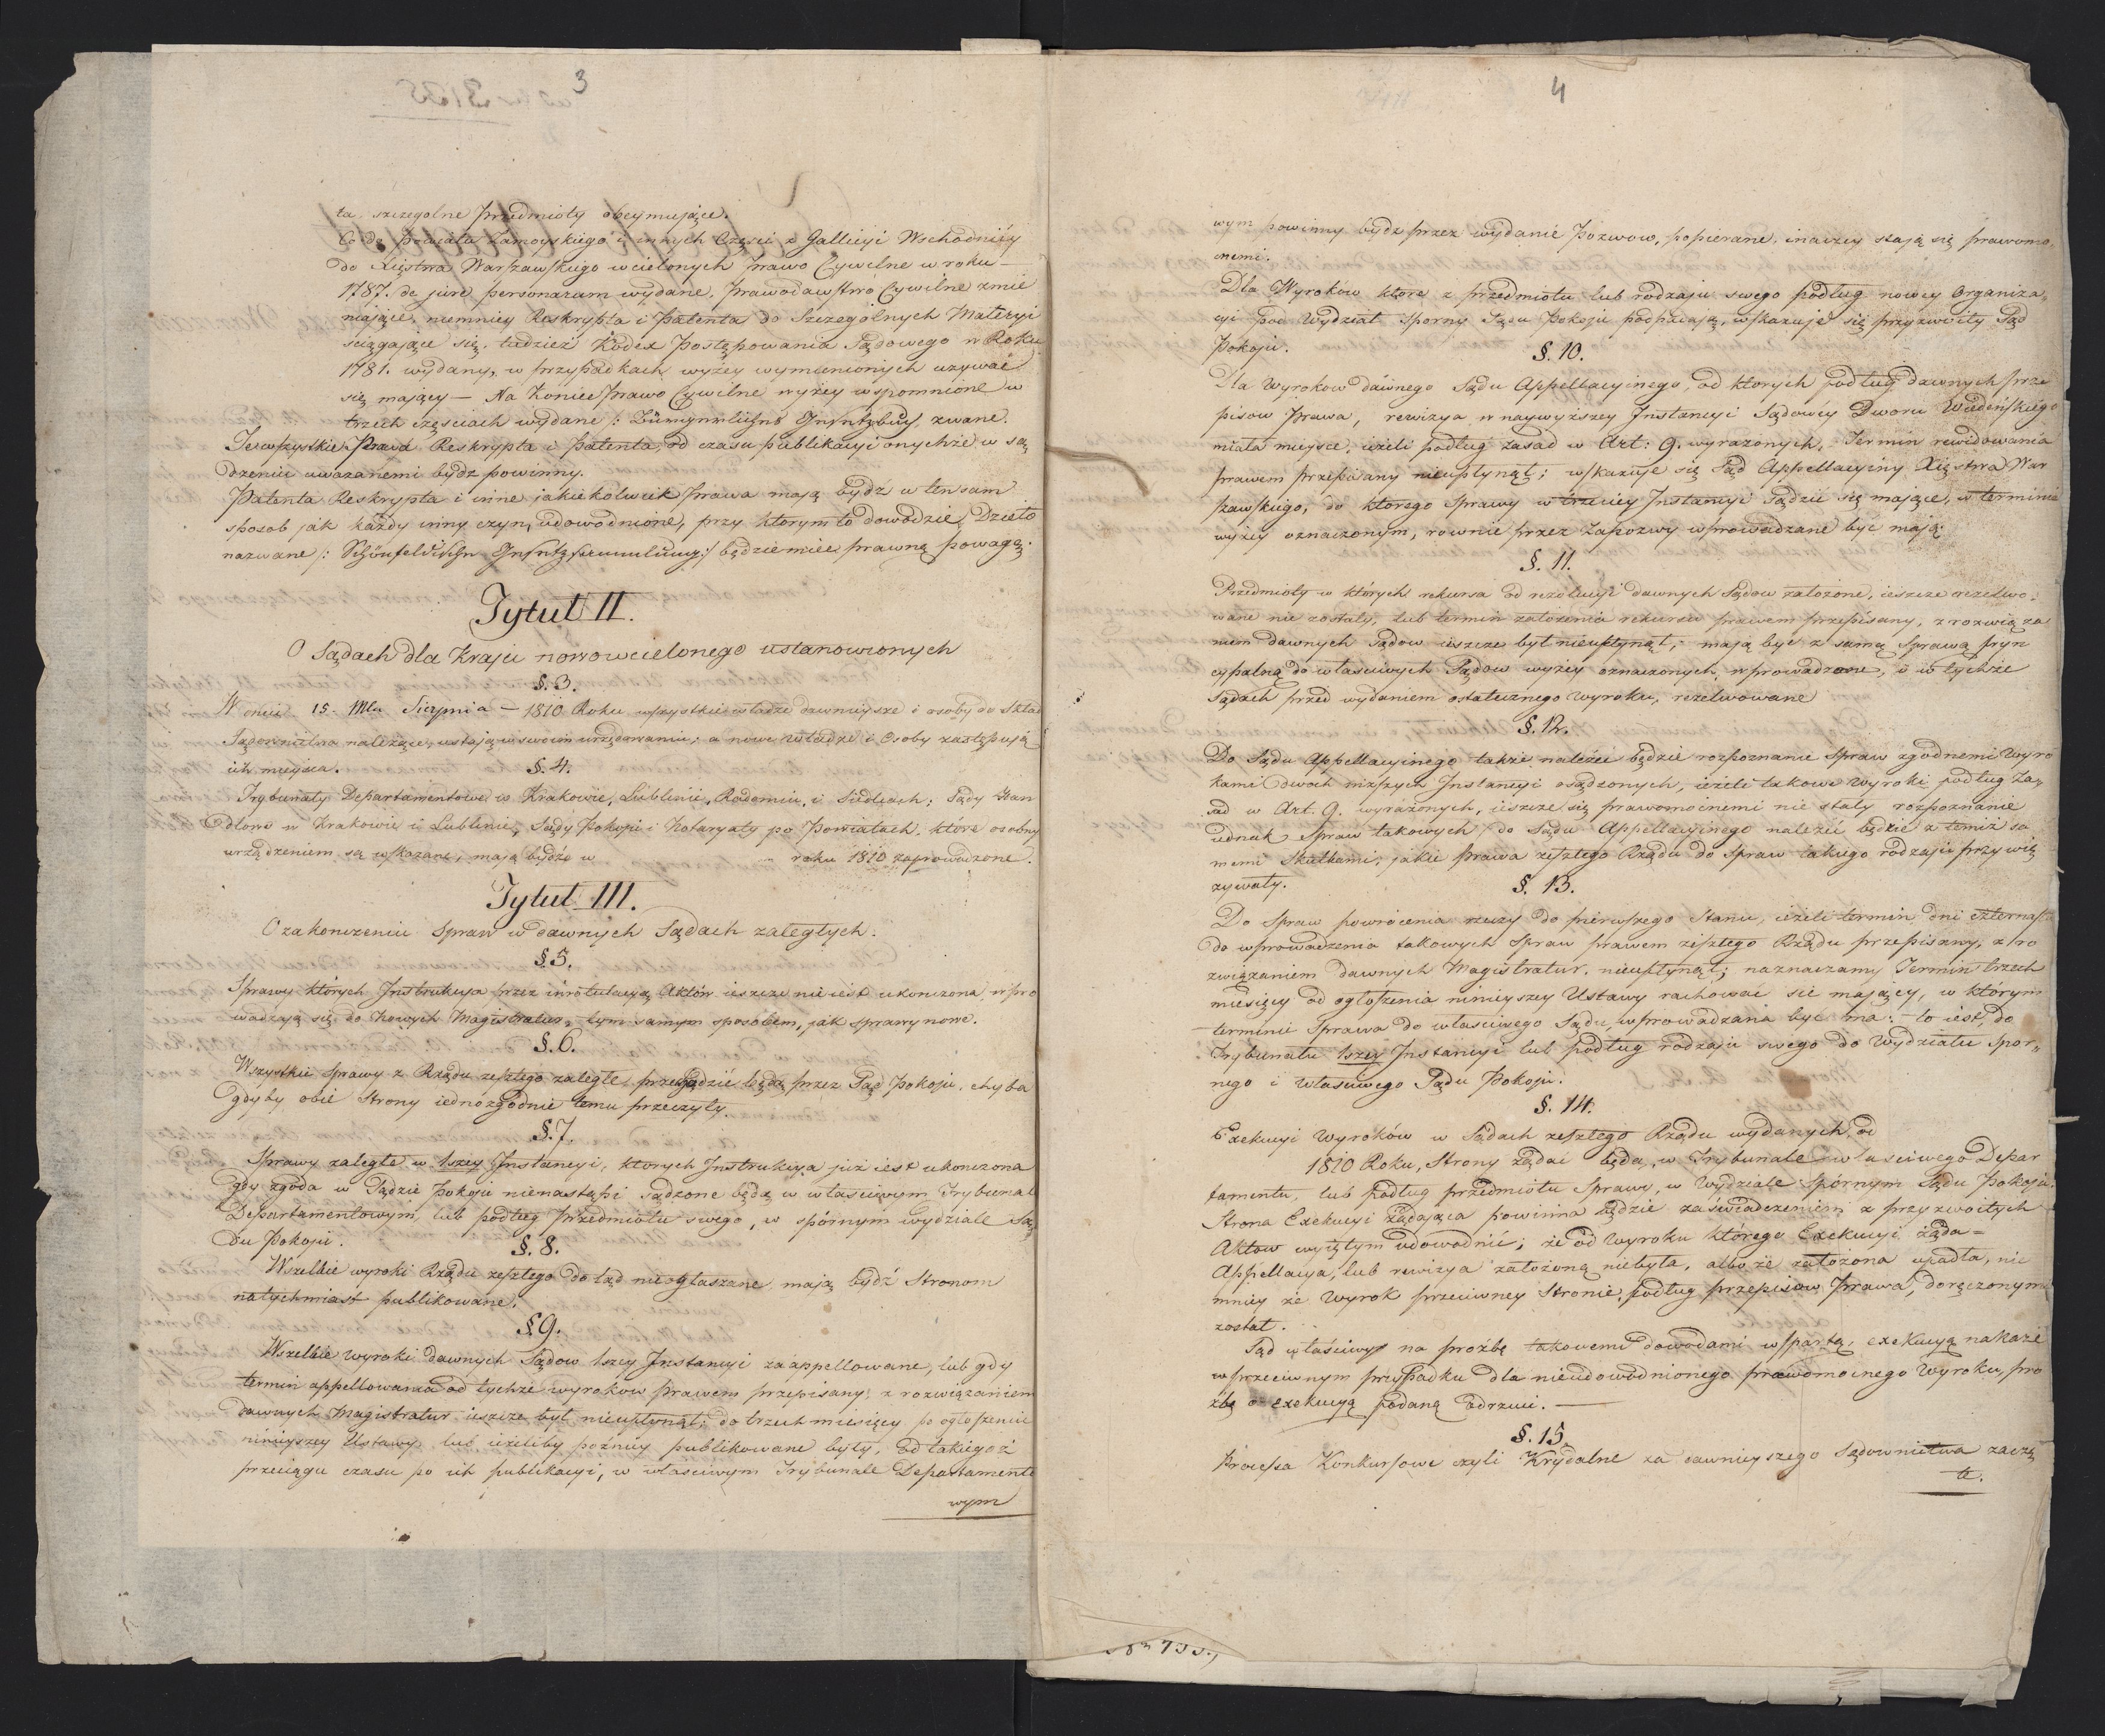 3
ta szczegolne przedmioty obeymujące.
Co do Powiatu Zamoyskiego i innych Części z Gallicyi Wschodniéy
do Xięstwa Warszawskiego wcielonych prawo Cywilne w roku —
1787. de jure personarum wydane, prawodawstwo Cywilne zmie
niające, niemniey Reskrypta i Patenta do Szczegolnych Materyi
sciągające się, tudzież Kodex Postępowania Sądowego w Roku
1781. wydany, w przypadkach wyżey wymienionych używać
się maiący — Na Koniec Prawo Cywilne wyżey wspomnione w
trzech częsciach wydane /: zwane.
Te wszystkie Prawa Reskrypta i Patenta, od czasu publikacyi onychże w są
dzeniu uważanemi bydz powinny.
Patenta Reskrypta i inne jakiekolwiek Prawa mają bydź w ten sam
sposob jak każdy inny czyn, udowodnione, przy którym to dowodzie Dzieło
nazwane /: Schönfeldische :/ będzie miec prawną powagę.
Tytuł II.
O Sądach dla Kraju nowowcielonego ustanowionych
§. 3.
W dniu 15. Mca Sierpnia — 1810 Roku wszystkie władze dawnieysze i osoby do Skład
Sądownictwa należące, ustają w swoim urzędowaniu; a nowe władze i Osoby zastępują
ich mieysca.
§. 4.
Trybunały Departamentowe w Krakowie, Lublinie, Radomiu, i Siedlcach; Sądy Han
dlowe w Krakowie i Lublinie, Sądy Pokoju i Notaryaty po Powiatach, które osobny
urządzeniem są wskazane, mają bydź w roku 1810 zaprowadzone.
Tytuł III.
O zakonczeniu Spraw w dawnych Sądach zaległych.
§. 5.
Sprawy których Instrukcya przez inrotulacyą Aktów ieszcze nie iest ukonczona, wpro
wadzają się do Nowych Magistratur, tym samym sposobem, jak sprawy nowe.
§. 6.
Wszystkie sprawy z Rządu zeszłego zaległe, przeyydzić będą przez Sąd Pokoju, chyba
gdyby obie Strony iednozgodnie temu przeczyły.
§. 7.
Sprawy zaległe w 1szey Instancyi, ktorych Instrukcya już iest ukonczona
gdy zgoda w Sądzie Pokoju nienastąpi sądzone będą w właściwym Trybunal
Departamentowym, lub podług Przedmiotu swego, w spórnym wydziale Są
du Pokoju.
§. 8.
Wszelkie wyroki Rządu zeszłego do tąd nieogłaszane mają bydź Stronom
natychmiast publikowane.
§. 9.
Wszelkie wyroki dawnych Sądow 1szey Instancyi zaappellowane, lub gdy
termin appellowania od tychże wyrokow prawem przepisany, z rozwiązaniem
dawnych Magistratur ieszcze był nieupłynął; do trzech miesięcy po ogłoszeniu
ninieyszey Ustawy, lub ieżeliby poźniey publikowane były, od takiegoż
przeciągu czasu po ich publikacyi, w właściwym Trybunale Departamento
wym
4
wym powinny bydz przez wydanie Pozwow, popierane, inaczey stają się prawomo
cnemi.
Dla Wyrokow które z przedmiotu lub rodzaju swego podług nowey Organiza,
cyi pod Wydział sporny Sądu Pokoju podpadają, wskazuje się przyzwoity Sąd
Pokoju.
§. 10.
Dla Wyrokow dawnego Sądu Appellacyinego, od ktorych podług dawnych prze
pisow Prawa, rewizya w naywyższey Instancyi Sądowéy Dworu Wiedeńskiego
miała mieysce, ieżeli podług zasad w Art: 9. wyrażonych, Termin rewidowania
prawem przepisany nieupłynął; wskazuje się Sąd Appellacyiny Xięstwa War
szawskiego, do ktorego Sprawy w trzeciey Instancyi sądzić się mające, w terminie
wyżey oznaczonym, rownie przez Zapozwy wprowadzane być mają.
§. 11.
Przedmioty w których rekursa od rezolucyi dawnych Sądow założone, ieszcze rezolwo,
wane nie zostały, lub termin założenia rekursu prawem przepisany, z rozwiąza
niem dawnych Sądow ieszcze był nieupłynął, mają być z samą sprawą pryn
cypalną do właściwych Sądow wyżey oznaczonych, wprowadzone, i w tychże
Sądach przed wydaniem ostatecznego wyroku, rezolwowane
§. 12.
Do Sądu Appellacyinego także należéć będzie rozpoznanie Spraw zgodnemi Wyro
kami dwoch niższych Instancyi osądzonych, ieżeli takowe wyroki podług Za,
sad w Art. 9. wyrażonych, ieszcze się prawomocnemi nie stały rozpoznanie
iednak Spraw takowych do Sądu Appellacyinego należéć będzie z temiż sa
memi Skutkami, jakie Prawa zeszłego Rządu do Spraw takiego rodzaju przywią
zywały.
§. 13.
Do Spraw powrócenia rzeczy do pierwszego Stanu, ieżeli termin dni czternastu
do wprowadzenia takowych Spraw prawem zeszłego Rządu przepisany, z ro
związaniem dawnych Magistratur, nieupłynął; naznaczamy Termin trzech
miesięcy od ogłoszenia ninieyszey Ustawy rachować się maiący, w którym
terminie Sprawa do właściwego Sądu, wprowadzana być ma; to iest, do
Trybunału 1szey Instancyi lub podług rodzaju swego do Wydziału Spor„
nego i właściwego Sądu Pokoju.
§. 14.
Exekucyi Wyroków w Sądach zeszłego Rządu wydanych, od
1810 Roku, Strony żądać będą, w Trybunale właściwego Depar
tamentu, lub podług przedmiotu Sprawy, w Wydziale Spórnym Sądu Pokoju.
Strona Exekucyi żądająca powinna będzie zaświadczeniem z przyzwoitych
Aktow wyiętym udowodnić; że od Wyroku którego Exekucyi żąda =
Appellacya, lub rewizya założoną niebyła, albo że założona upadła, nie
mniey że Wyrok przeciwney Stronie, podług przepisow Prawa, doręczonym
został.
Sąd właściwy na proźbę takowemi dowodami wspartą, exekucyą nakaże
w przeciwnym przypadku dla nieudowodnionego prawomocnego Wyroku, pro
źbę o exekucyą podaną odrzuci. —
§. 15
Processa Konkursowe czyli Krydalne za dawnieyszego Sądownictwa zaczę
te.